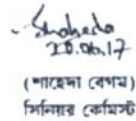 Shaheda
20.06.17
(শাহেদা বেগম)
সিনিয়র কেমিস্ট